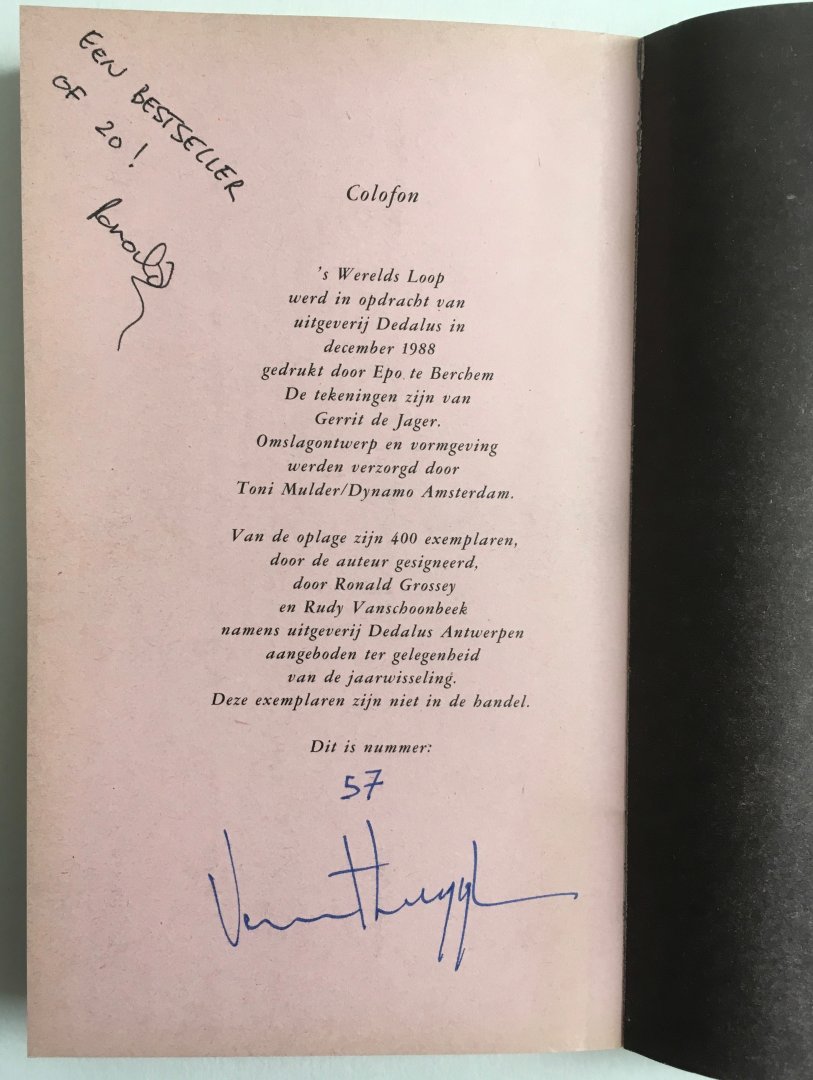 EEN BESTSELLER
OF 20!
Ronald
Colofon
's Werelds Loop
werd in opdracht van
uitgeverij Dedalus in
december 1988
gedrukt door Epo te Berchem
De tekeningen zijn van
Gerrit de Jager.
Omslagontwerp en vormgeving
werden verzorgd door
Toni Mulder/Dynamo Amsterdam.
Van de oplage zijn 400 exemplaren,
door de auteur gesigneerd,
door Ronald Grossey
en Rudy Vanschoonbeek
namens uitgeverij Dedalus Antwerpen
aangeboden ter gelegenheid
van de jaarwisseling.
Deze exemplaren zijn niet in de handel.
Dit is nummer:
57